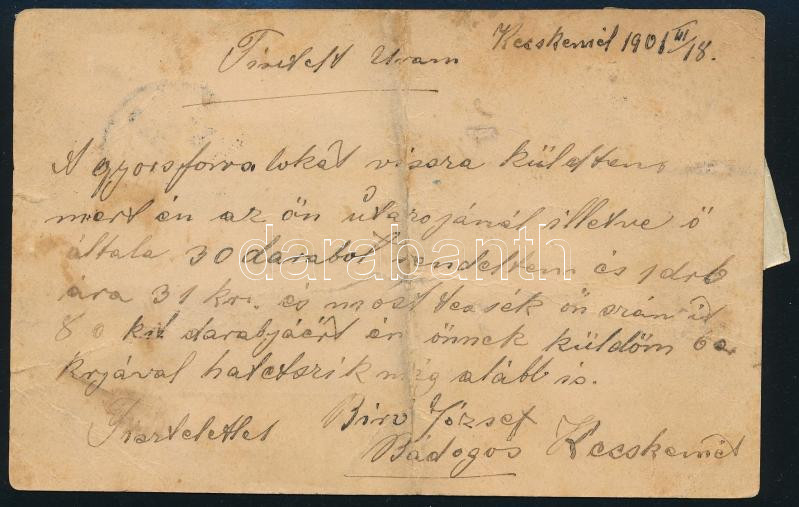 Kecskemét 1901 III/18.
Tisztelt Uram
A gyorsforralokat visza küldtem
mert én az ön utazojánál illetve ő
általa 30 darabot rendeltem és 1 drb
ára 31 kr. és most tessék ön szán it
80 krt darabjáért én önnek küldöm 60
krjával ha tetszik még alább is.
Tisztelettel Biro József
Bádogos Kecskemét
darabanth